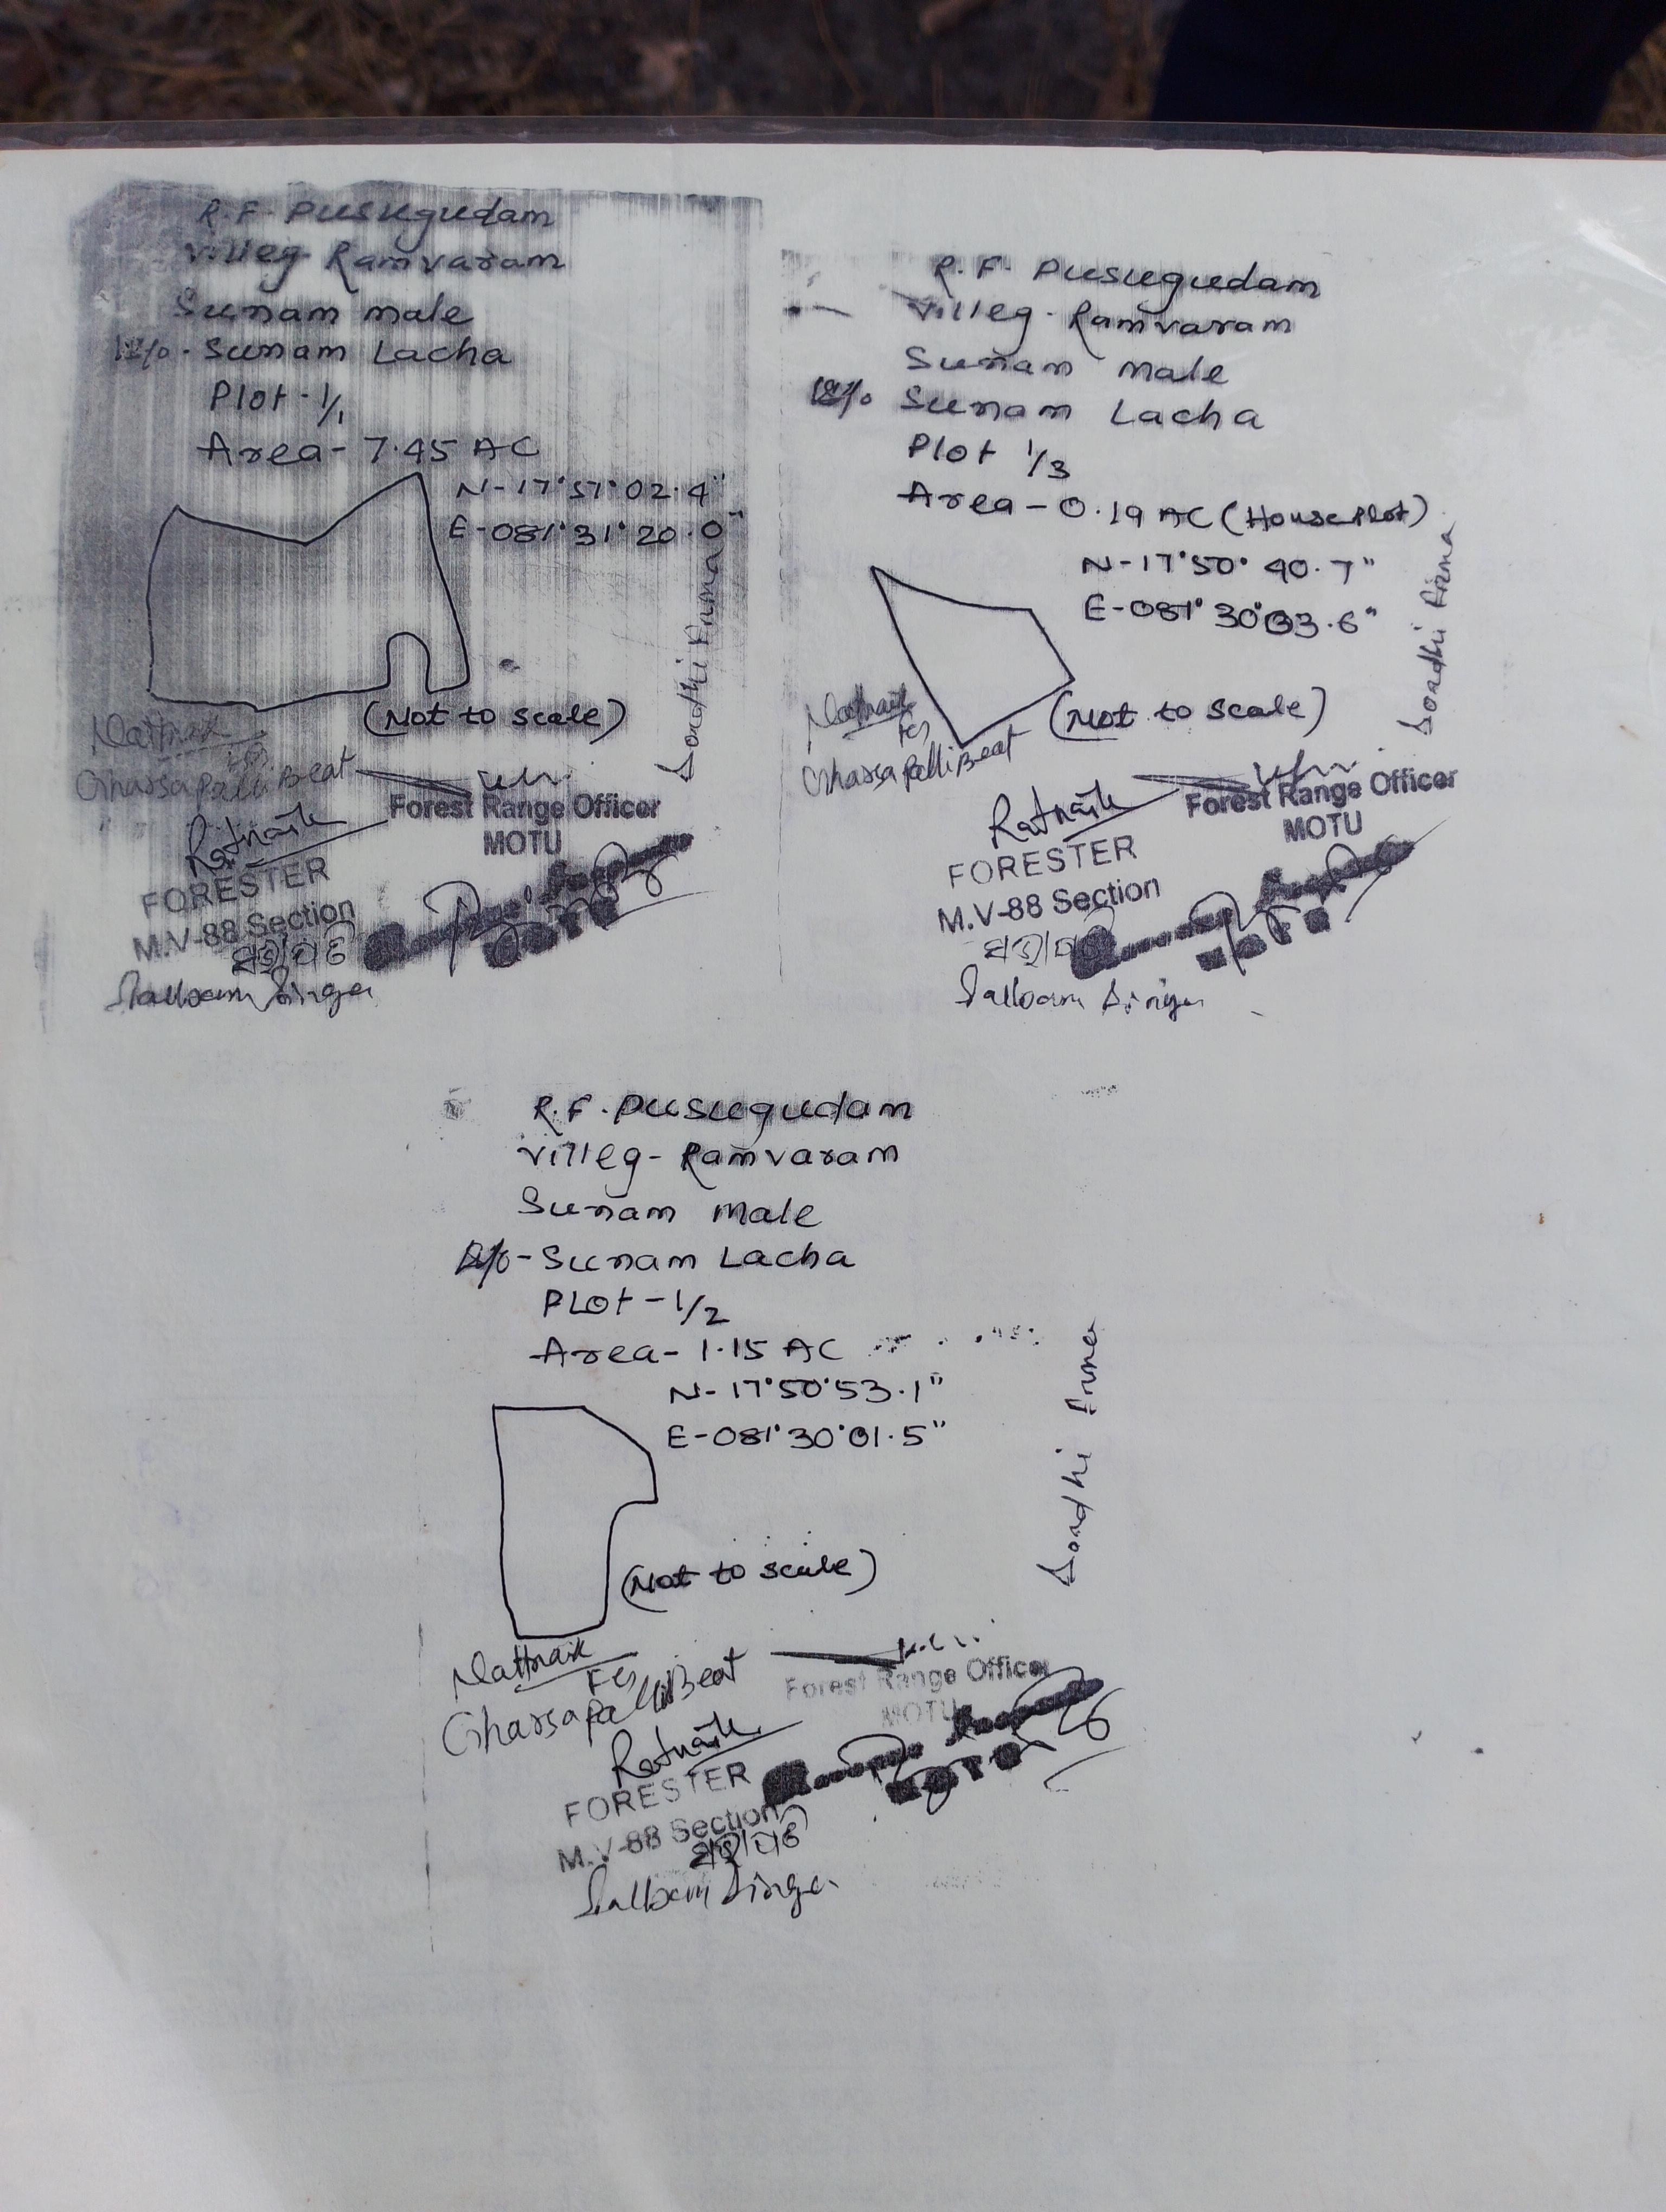 R.F. Pusugudam
Villeg- Ramvaram
Sunam male
Sunam Lacha
Plot - 1/1
Area- 7.45 AC
N-17°51°02.4"
E-081°31°20.0"
(Not to scale)
Sondhi Erma
Nattnaik
FG
Gharsapalli Beat
Forest Range Officer
MOTU
Ratnaik
FORESTER
M.V-88 Section
R.F. Pusugudam
Villeg- Ramvaram
Sunam male
Sunam Lacha
Plot 1/3
Area - 0.19 AC (House Plot)
N-17°50° 40.7"
E-081° 30°03.6"
(Not to scale)
Sondhi Erma
Nattnaik
FG
Gharsapalli Beat
Forest Range Officer
MOTU
Ratnaik
FORESTER
M.V-88 Section
R.F. Pusugudam
Villeg- Ramvaram
Sunam male
Sunam Lacha
PLot - 1/2
Area- 1.15 AC
N- 17°50°53.1"
E-081°30°01.5"
(Not to scale)
Sondhi Erma
Nattnaik
FG
Gharsapalli Beat
Forest Range Officer
MOTU
Ratnaik
FORESTER
M.V-88 Section